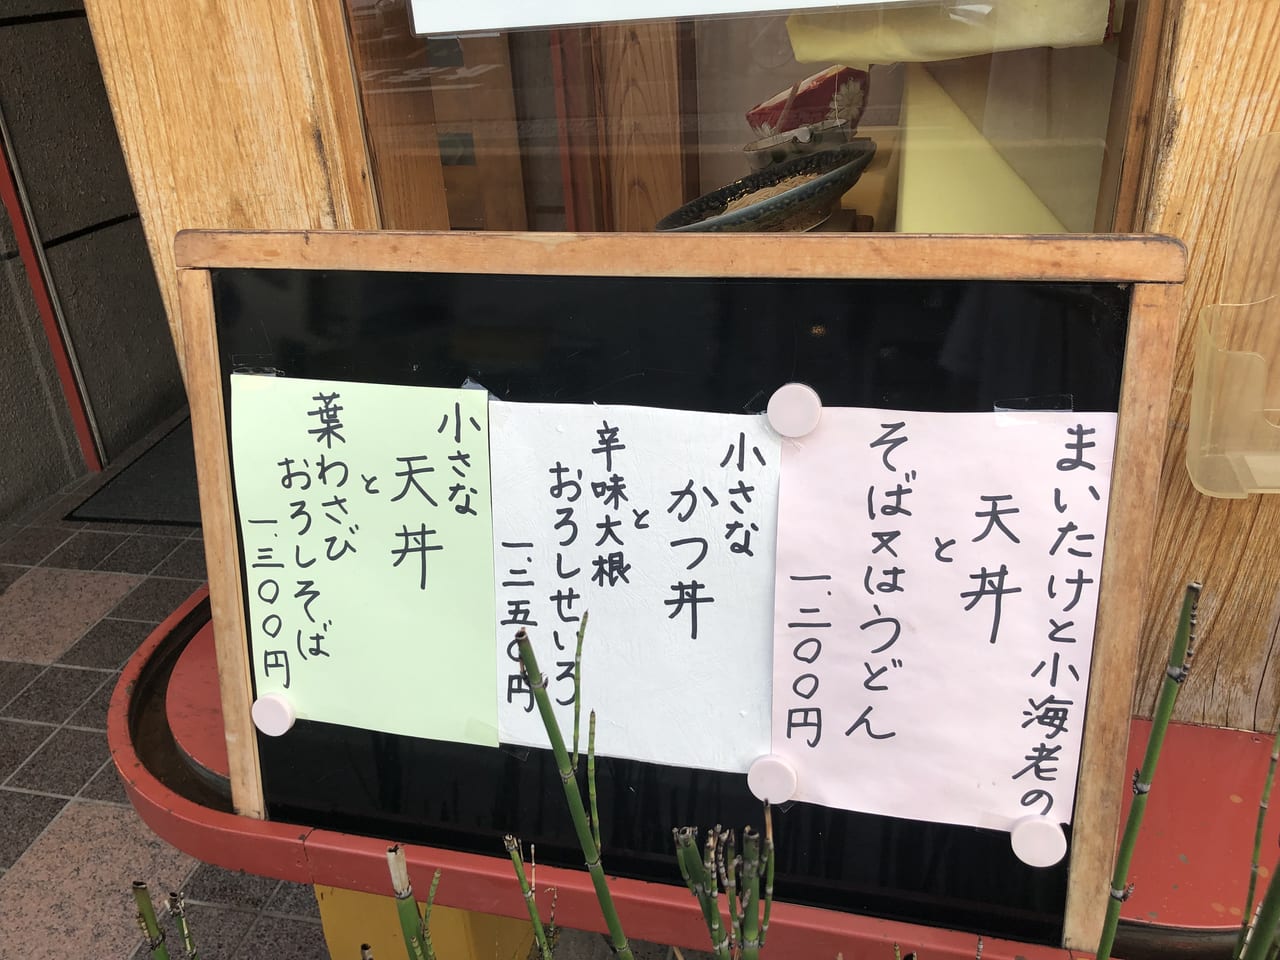 まいたけと小海老の
天丼
と
そば又はうどん
一、二〇〇円
小さな
かつ丼
と
辛味大根
おろしせいろ
一、二五〇円
小さな
天丼
と
葉わさび
おろしそば
一、三〇〇円